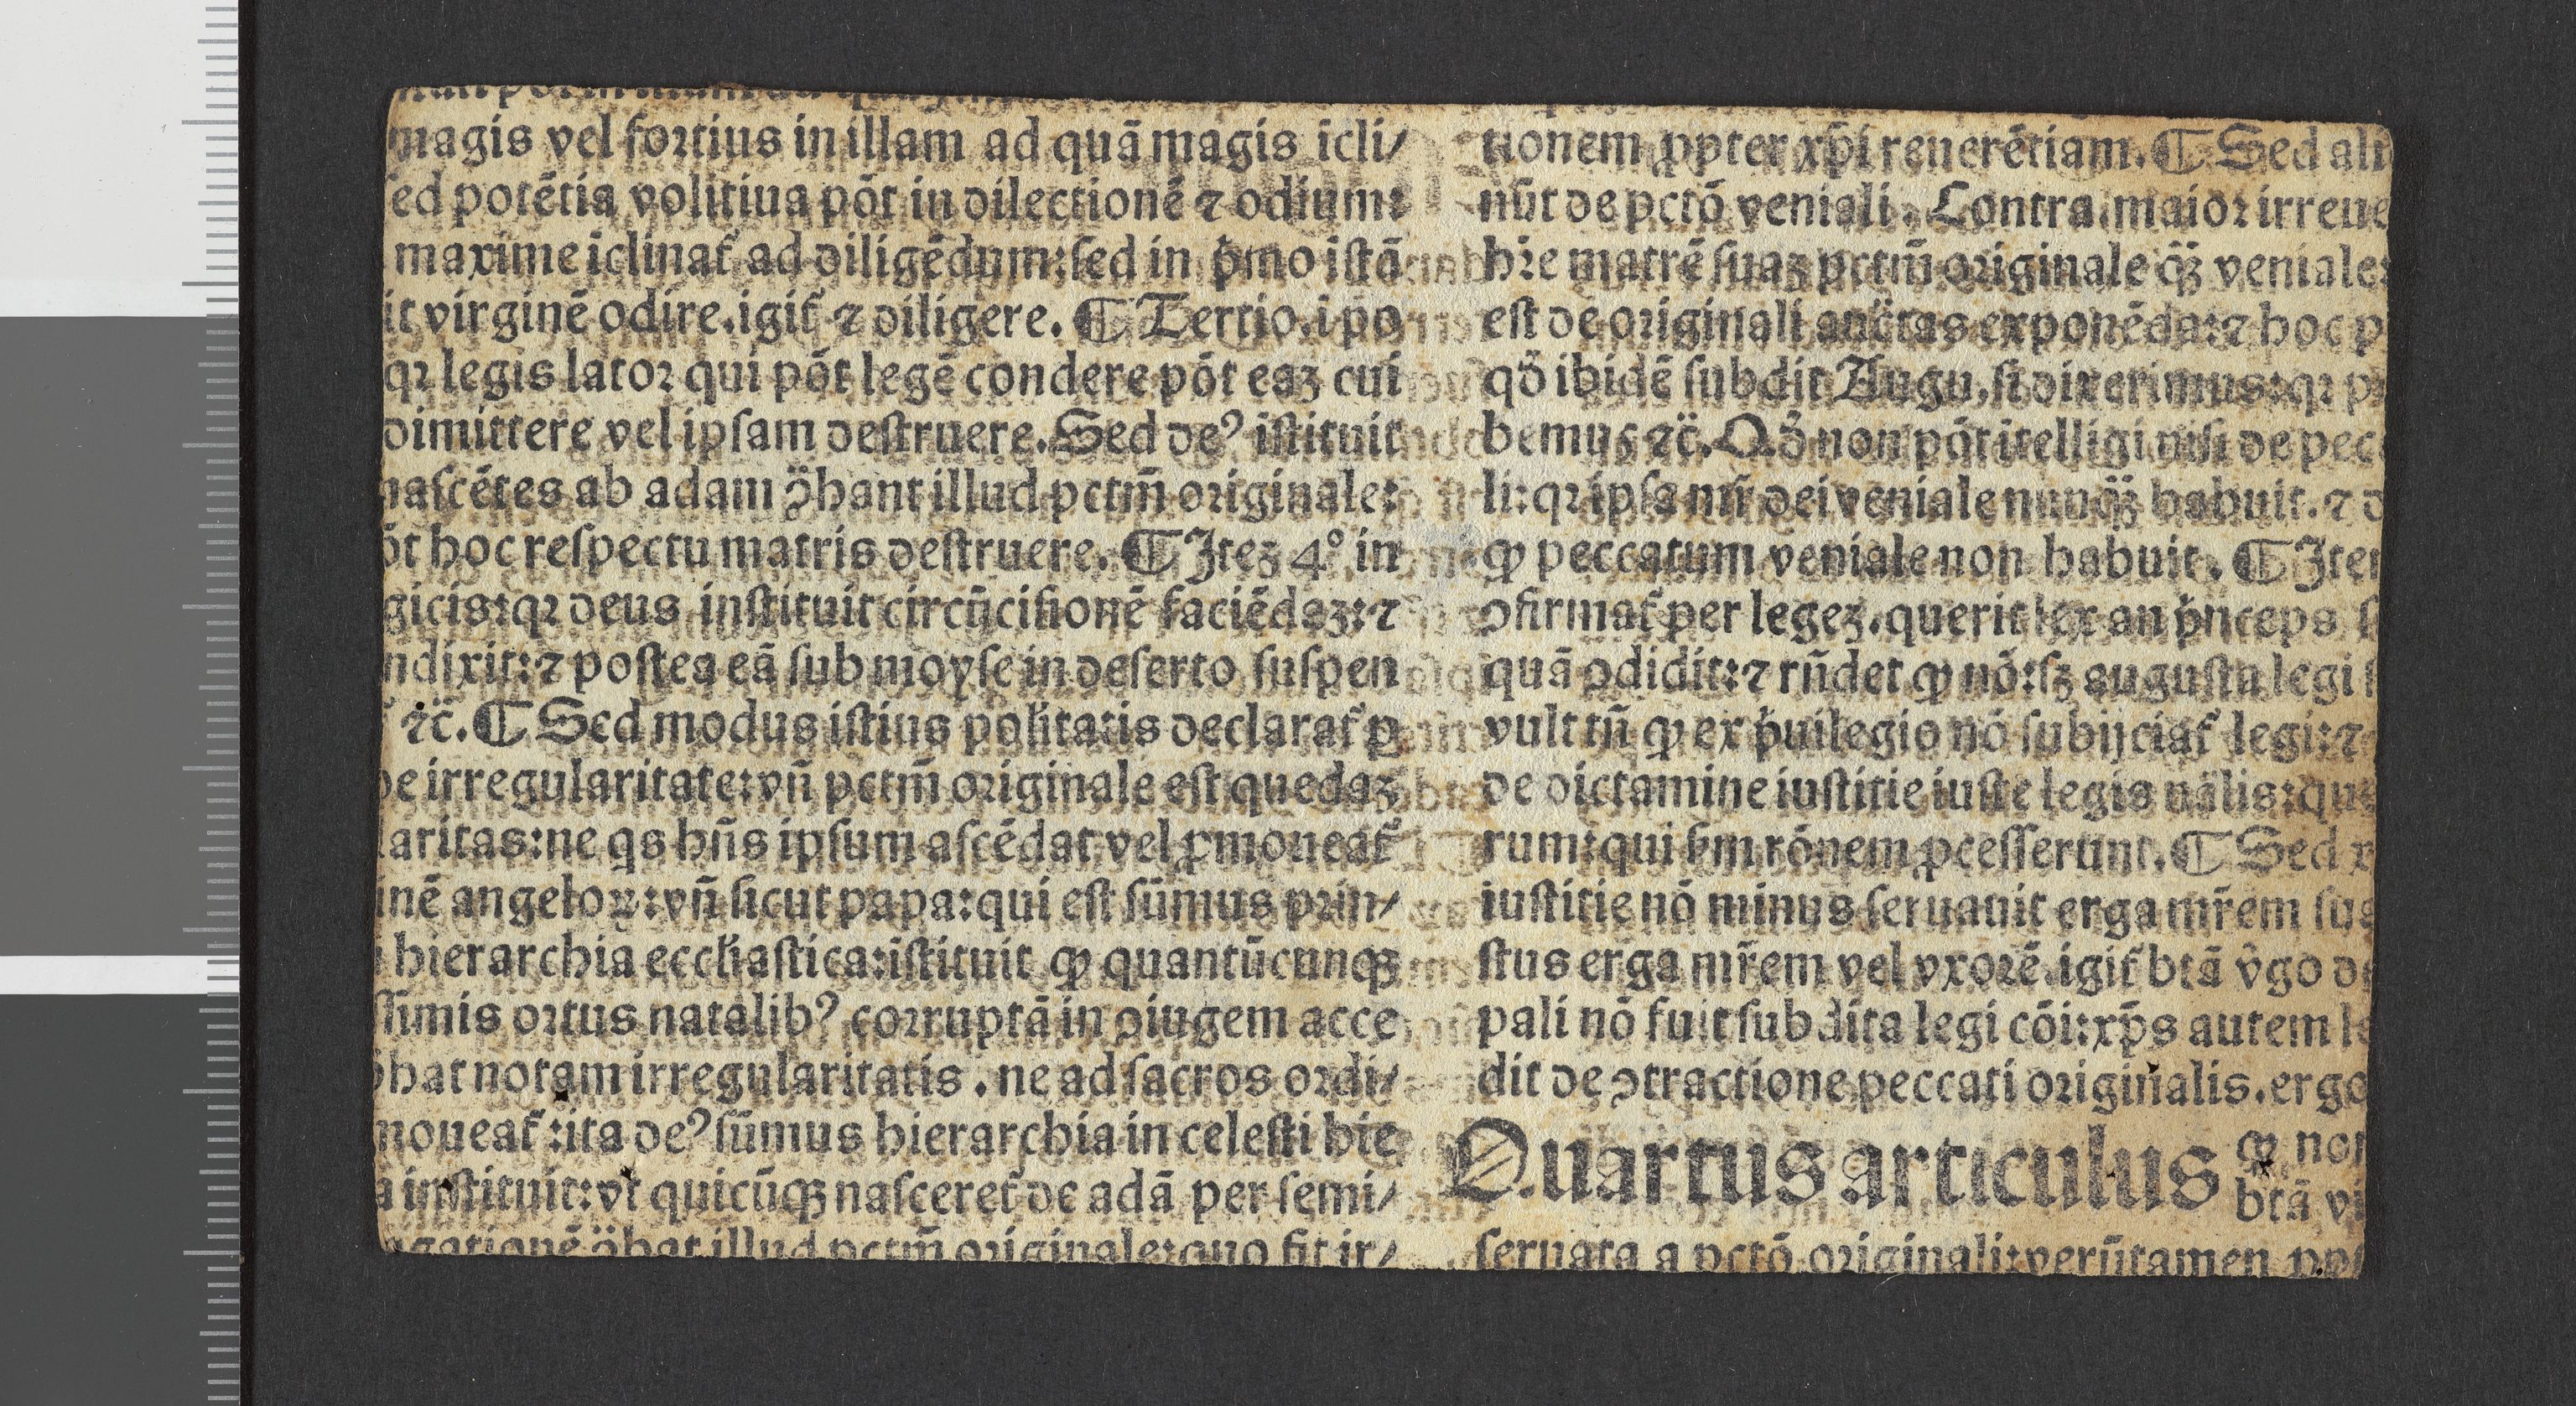 magis vel fortius in illam ad quā magis īcli/
sed potētia volitiua pōt in dilectionē ⁊ odium:
maxime īclinat᷑ ad diligēdum: sed in p̍mo istā
it virginē odire. igit᷑ ⁊ diligere. ¶ Tertio. i po
qꝛ legis lator qui pōt legē condere pōt eaꝫ cui
dimittere vel ipsam destruere. Sed deꝰ īstituit
nascētes ab adam ꝯ̈hant illud pctm̄ originale:
ōt hoc respectu matris destruere. ¶ Iteꝫ 4° in
gicis: qꝛ deus instituit circūcisionē faciēdaꝫ: ⁊
ndixit: ⁊ postea eā sub moyse in deserto suspen
⁊c̄. ¶ Sed modus istius pol̄itatis declarat᷑ ꝑ
de irregularitate: vn̄ pctm̄ originale est quedaꝫ
laritas: ne qs hn̄s ipsum ascēdat vel ꝓmoueat᷑
inē angeloꝝ: vn̄ sicut papa: qui est sūmus prin/
hierarchia eccl̄iastica: īstituit ꝙ quantūcunqꝫ
ssimis ortus natalibꝰ corruptā in ꝯiugem acce
ꝯ̈hat notam irregularitatis. ne ad sacros ordi/
moueat᷑: ita deꝰ sūmus hierarchia in celesti hie
a instituit: vt quicūqꝫ nasceret᷑ de adā per semi/
agationē ꝯ̈hat illud pctm̄ originale: quo fit ir/
tionem ꝓpter xp̄i reuerētiam. ¶ Sed ali
nūt de pctō veniali. Contra. maior irreue
hr̄e matrē suaꝫ pctm̄ originale q̄ꝫ veniale:
est de originali auctas exponēda: ⁊ hoc p
qd̄ ibidē subdit Augu. si dixerimus: qꝛ p
bemus ⁊c̄. Qd̄ non pōt ītelligi nisi de pec
li: qꝛ ipsa mr̄ dei veniale nunq̄ꝫ habuit. ⁊ d
ꝙ peccatum veniale non habuit. ¶ Iter
ꝯfirmat᷑ per legeꝫ. querit lex an p̍nceps s
quā ꝯdidit: ⁊ rn̄det ꝙ nō: sꝫ augusta legi s
vult tn̄ ꝙ ex p̍uilegio nō subijciat᷑ legi: ⁊
de dictamine iustitie iuste legis nālis: que
rum: qui scd̄m rōnem ꝓcesserunt. ¶ Sed x
iustitie nō minus seruauit erga mr̄em sua
stus erga mr̄em vel vxorē. igit᷑ btā v̄go de
pali nō fuit subdita legi cōi: xp̄s autem le
dit de ꝯtractione peccati originalis. ergo
Quartus articulus ꝙ non
btā vi
seruata a pctō originali: verūtamen pp̄t